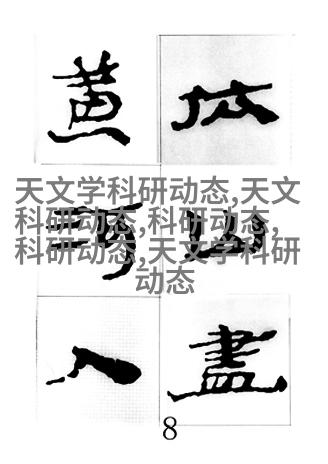 依山盡
黄河入
天文学科研动态,天文
科研动态,科研动态,
科研动态,天文学科研
动态
8